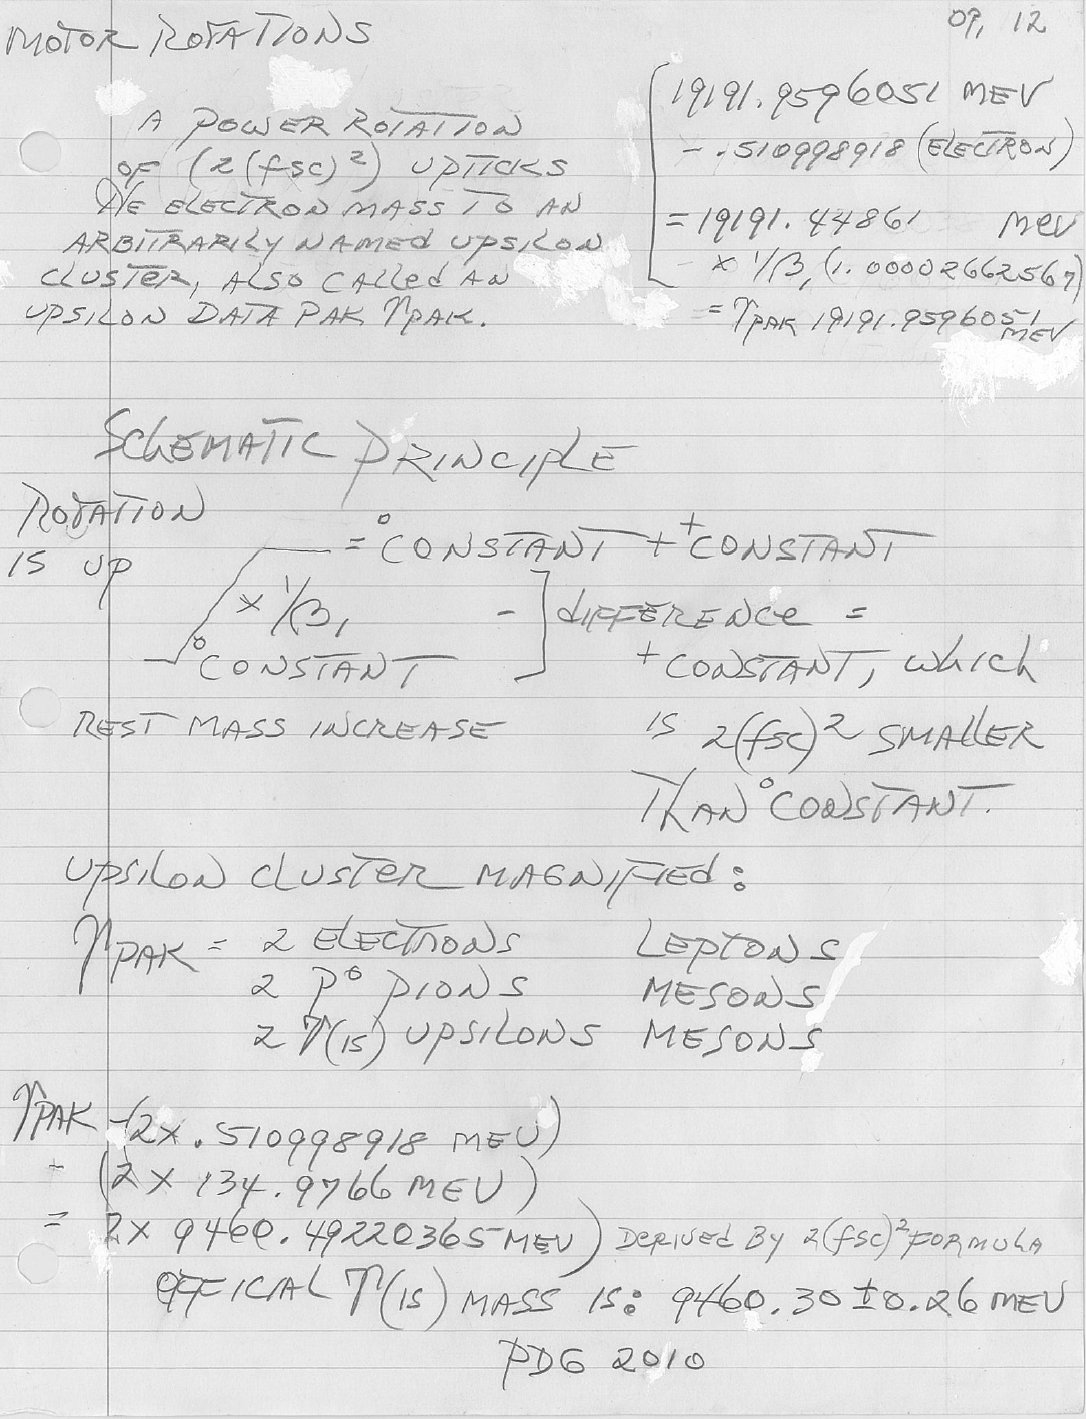 OP, 12
MOTOR ROTATIONS
A POWER ROTATION
OF (2(fSC)²) UPTICKS
THE ELECTRON MASS TO AN
ARBITRARILY NAMED UPSILON
CLUSTER, ALSO CALLED AN
UPSILON DATA PAK ϒPAK.
19191.9596051 MEV
- .510998918 (ELECTRON)
= 19191.44861 MEV
x 1/β, (1.00002662567)
= ϒPAK 19191.9596051
MEV
SCHEMATIC PRINCIPLE
ROTATION
IS UP
= °CONSTANT + +CONSTANT
x 1/β,
°CONSTANT
- ] DIFFERENCE =
+CONSTANT, WHICH
REST MASS INCREASE
IS 2(fSC)² SMALLER
THAN °CONSTANT.
UPSILON CLUSTER MAGNIFIED:
ϒPAK = 2 ELECTRONS LEPTONS
2 P° PIONS MESONS
2 ϒ(1S) UPSILONS MESONS
ϒPAK -(2x .510998918 MEV)
- (2 x 134.9766 MEV)
= 2x 9460.49220365 MEV) DERIVED BY 2(fSC)² FORMULA
OFFICIAL ϒ(1S) MASS IS: 9460.30 ± 0.26 MEV
PDG 2010